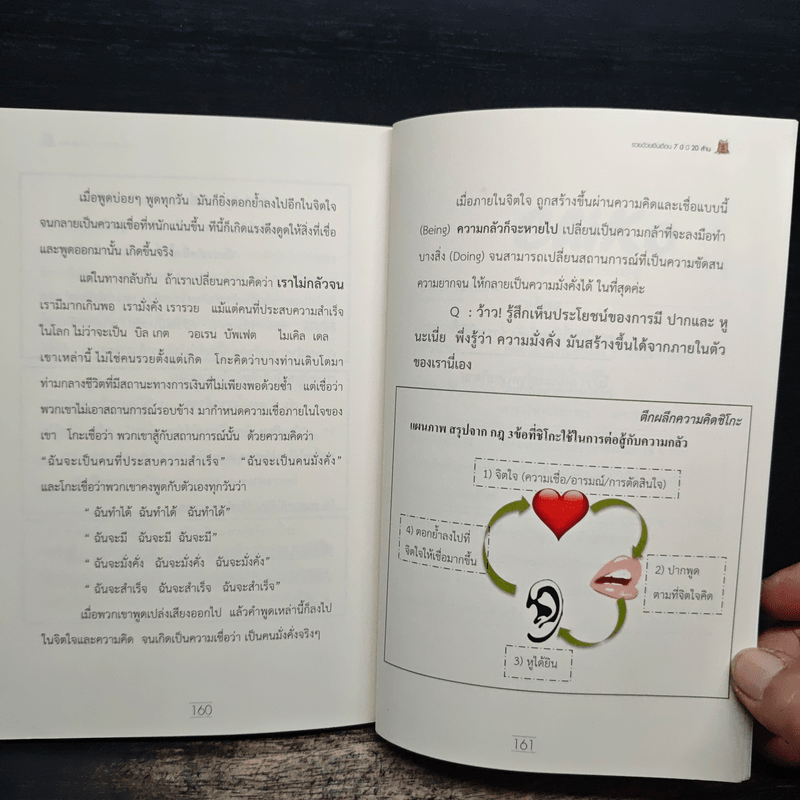 เมื่อพูดบ่อยๆ พูดทุกวัน มันก็ยิ่งตอกย้ำลงไปอีกในจิตใจ
จนกลายเป็นความเชื่อที่หนักแน่นขึ้น ทีนี้ก็เกิดแรงดึงดูดให้สิ่งที่เชื่อ
และพูดออกมานั้น เกิดขึ้นจริง
แต่ในทางกลับกัน ถ้าเราเปลี่ยนความคิดว่า เราไม่กลัวจน
เรามีมากเกินพอ เรามั่งคั่ง เรารวย แม้แต่คนที่ประสบความสำเร็จ
ในโลก ไม่ว่าจะเป็น บิล เกต วอเรน บัพเฟต ไมเคิล เดล
เขาเหล่านี้ ไม่ใช่คนรวยตั้งแต่เกิด โกะคิดว่าบางท่านเติบโตมา
ท่ามกลางชีวิตที่มีสถานะทางการเงินที่ไม่เพียงพอด้วยซ้ำ แต่เชื่อว่า
พวกเขาไม่เอาสถานการณ์รอบข้าง มากำหนดความเชื่อภายในใจของ
เขา โกะเชื่อว่า พวกเขาสู้กับสถานการณ์นั้น ด้วยความคิดว่า
“ฉันจะเป็นคนที่ประสบความสำเร็จ” “ฉันจะเป็นคนมั่งคั่ง”
และโกะเชื่อว่าพวกเขาคงพูดกับตัวเองทุกวันว่า
“ ฉันทำได้ ฉันทำได้ ฉันทำได้”
“ ฉันจะมี ฉันจะมี ฉันจะมี”
“ ฉันจะมั่งคั่ง ฉันจะมั่งคั่ง ฉันจะมั่งคั่ง”
“ ฉันจะสำเร็จ ฉันจะสำเร็จ ฉันจะสำเร็จ”
เมื่อพวกเขาพูดเปล่งเสียงออกไป แล้วคำพูดเหล่านี้ก็ลงไป
ในจิตใจและความคิด จนเกิดเป็นความเชื่อว่า เป็นคนมั่งคั่งจริงๆ
160
รวยด้วยเงินเดือน 7 0 มี 20 ล้าน
เมื่อภายในจิตใจ ถูกสร้างขึ้นผ่านความคิดและเชื่อแบบนี้
(Being) ความกลัวก็จะหายไป เปลี่ยนเป็นความกล้าที่จะลงมือทำ
บางสิ่ง (Doing) จนสามารถเปลี่ยนสถานการณ์ที่เป็นความขัดสน
ความยากจน ให้กลายเป็นความมั่งคั่งได้ ในที่สุดค่ะ
Q : ว้าว! รู้สึกเห็นประโยชน์ของการมี ปากและ หู
นะเนี่ย พึ่งรู้ว่า ความมั่งคั่ง มันสร้างขึ้นได้จากภายในตัว
ของเรานี่เอง
ตึกผลึกความคิดชิโกะ
แผนภาพ สรุปจาก กฎ 3ข้อที่ชิโกะใช้ในการต่อสู้กับความกลัว
1) จิตใจ (ความเชื่อ/อารมณ์/การตัดสินใจ)
4) ตอกย้ำลงไปที่
จิตใจให้เชื่อมากขึ้น
2) ปากพูด
ตามที่จิตใจคิด
3) หูได้ยิน
161